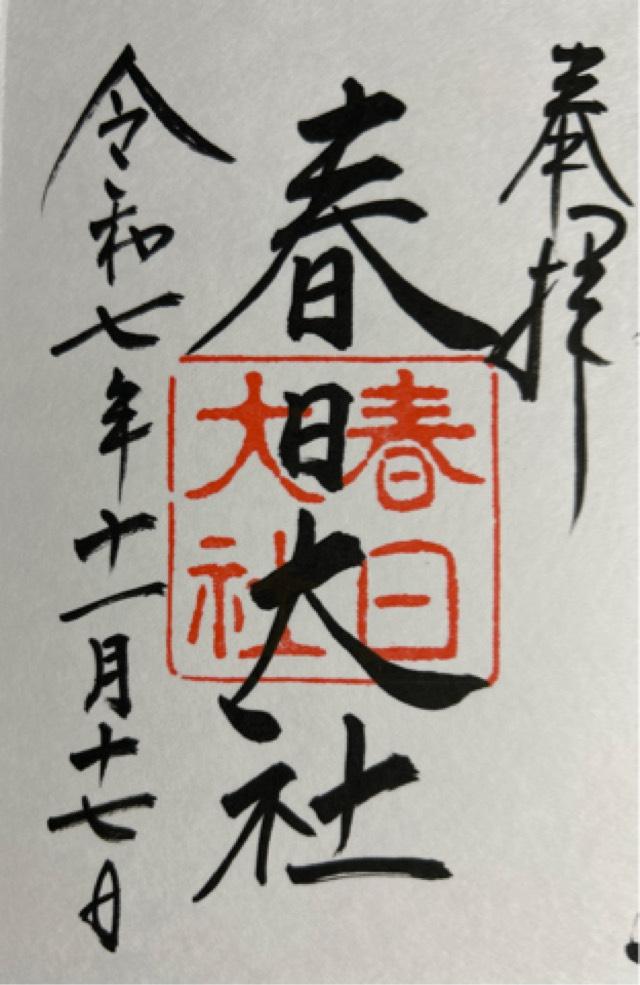 奉拝
春日大社
春日
大社
令和七年十一月十七日